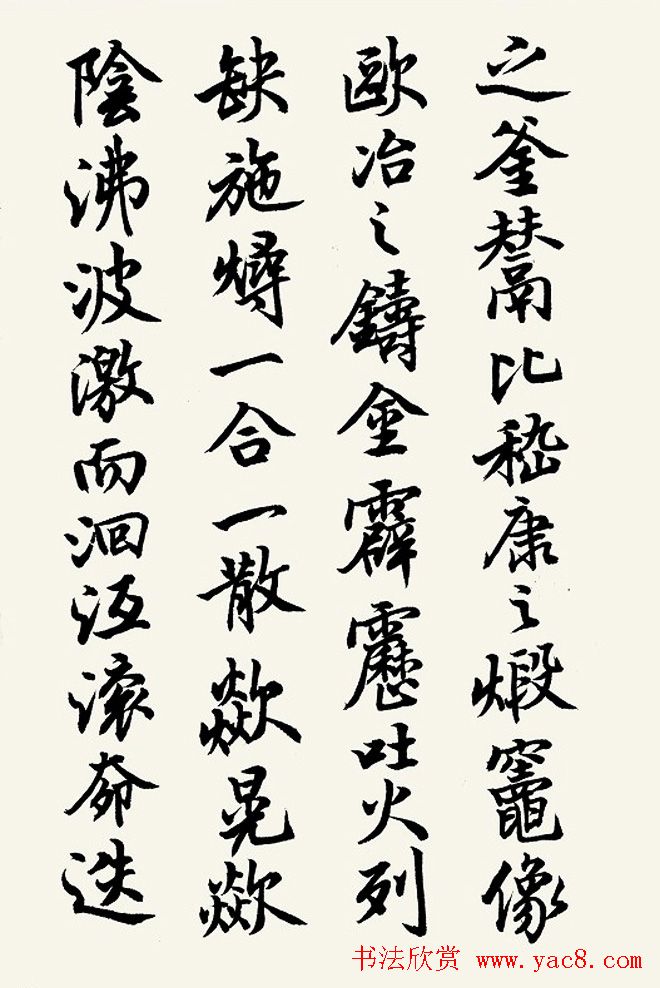 之釜鬵比嵇康之煅竈像
歐冶之鑄金霹靂吐火列
缺施㷟一合一散歘晃歘
陰沸波激而洄沍滾奔迭
书法欣赏 www.yac8.com